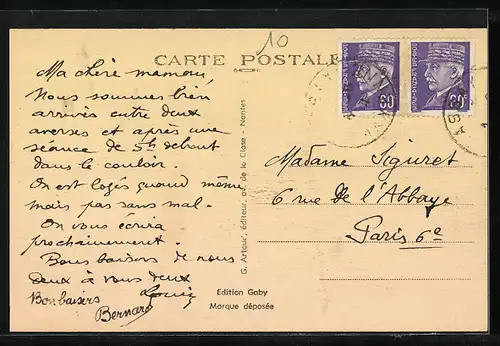 10
CARTE POSTALE
Ma chère maman,
Nous sommes bien
arrivés entre deux
averses et après une
séance de 5h debout
dans le couloir.
On est logés quand même
mais pas sans mal.
On vous écrira
prochainement.
Bons baisers de nous
deux à vous deux
Bon baisers
Bernard
G. Artaud, éditeur, av. de la Close - Nantes
Edition Gaby
Marque déposée
80
80
Madame Siguret
6 rue de l'Abbaye
Paris 6e